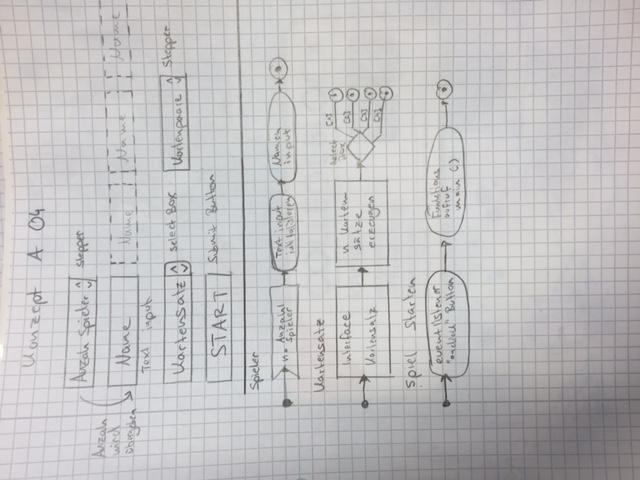 Konzept A 04
Anzahl Spieler Stepper
Anzahl
wird
übergeben
Name Name Name Name
Text input
Kartensatz Select Box Kartenpaare Stepper
START Submit Button
Spieler
n = Anzahl
Spieler
Text input
initialisieren
Namen
input
Kartensatz
Interface
Kartensatz
n Karten
sätze
erzeugen
Select
Box
[x]
[x]
[x]
[x]
Spiel Starten
eventlistener
"onclick" Button
Funktions
aufruf
main ()